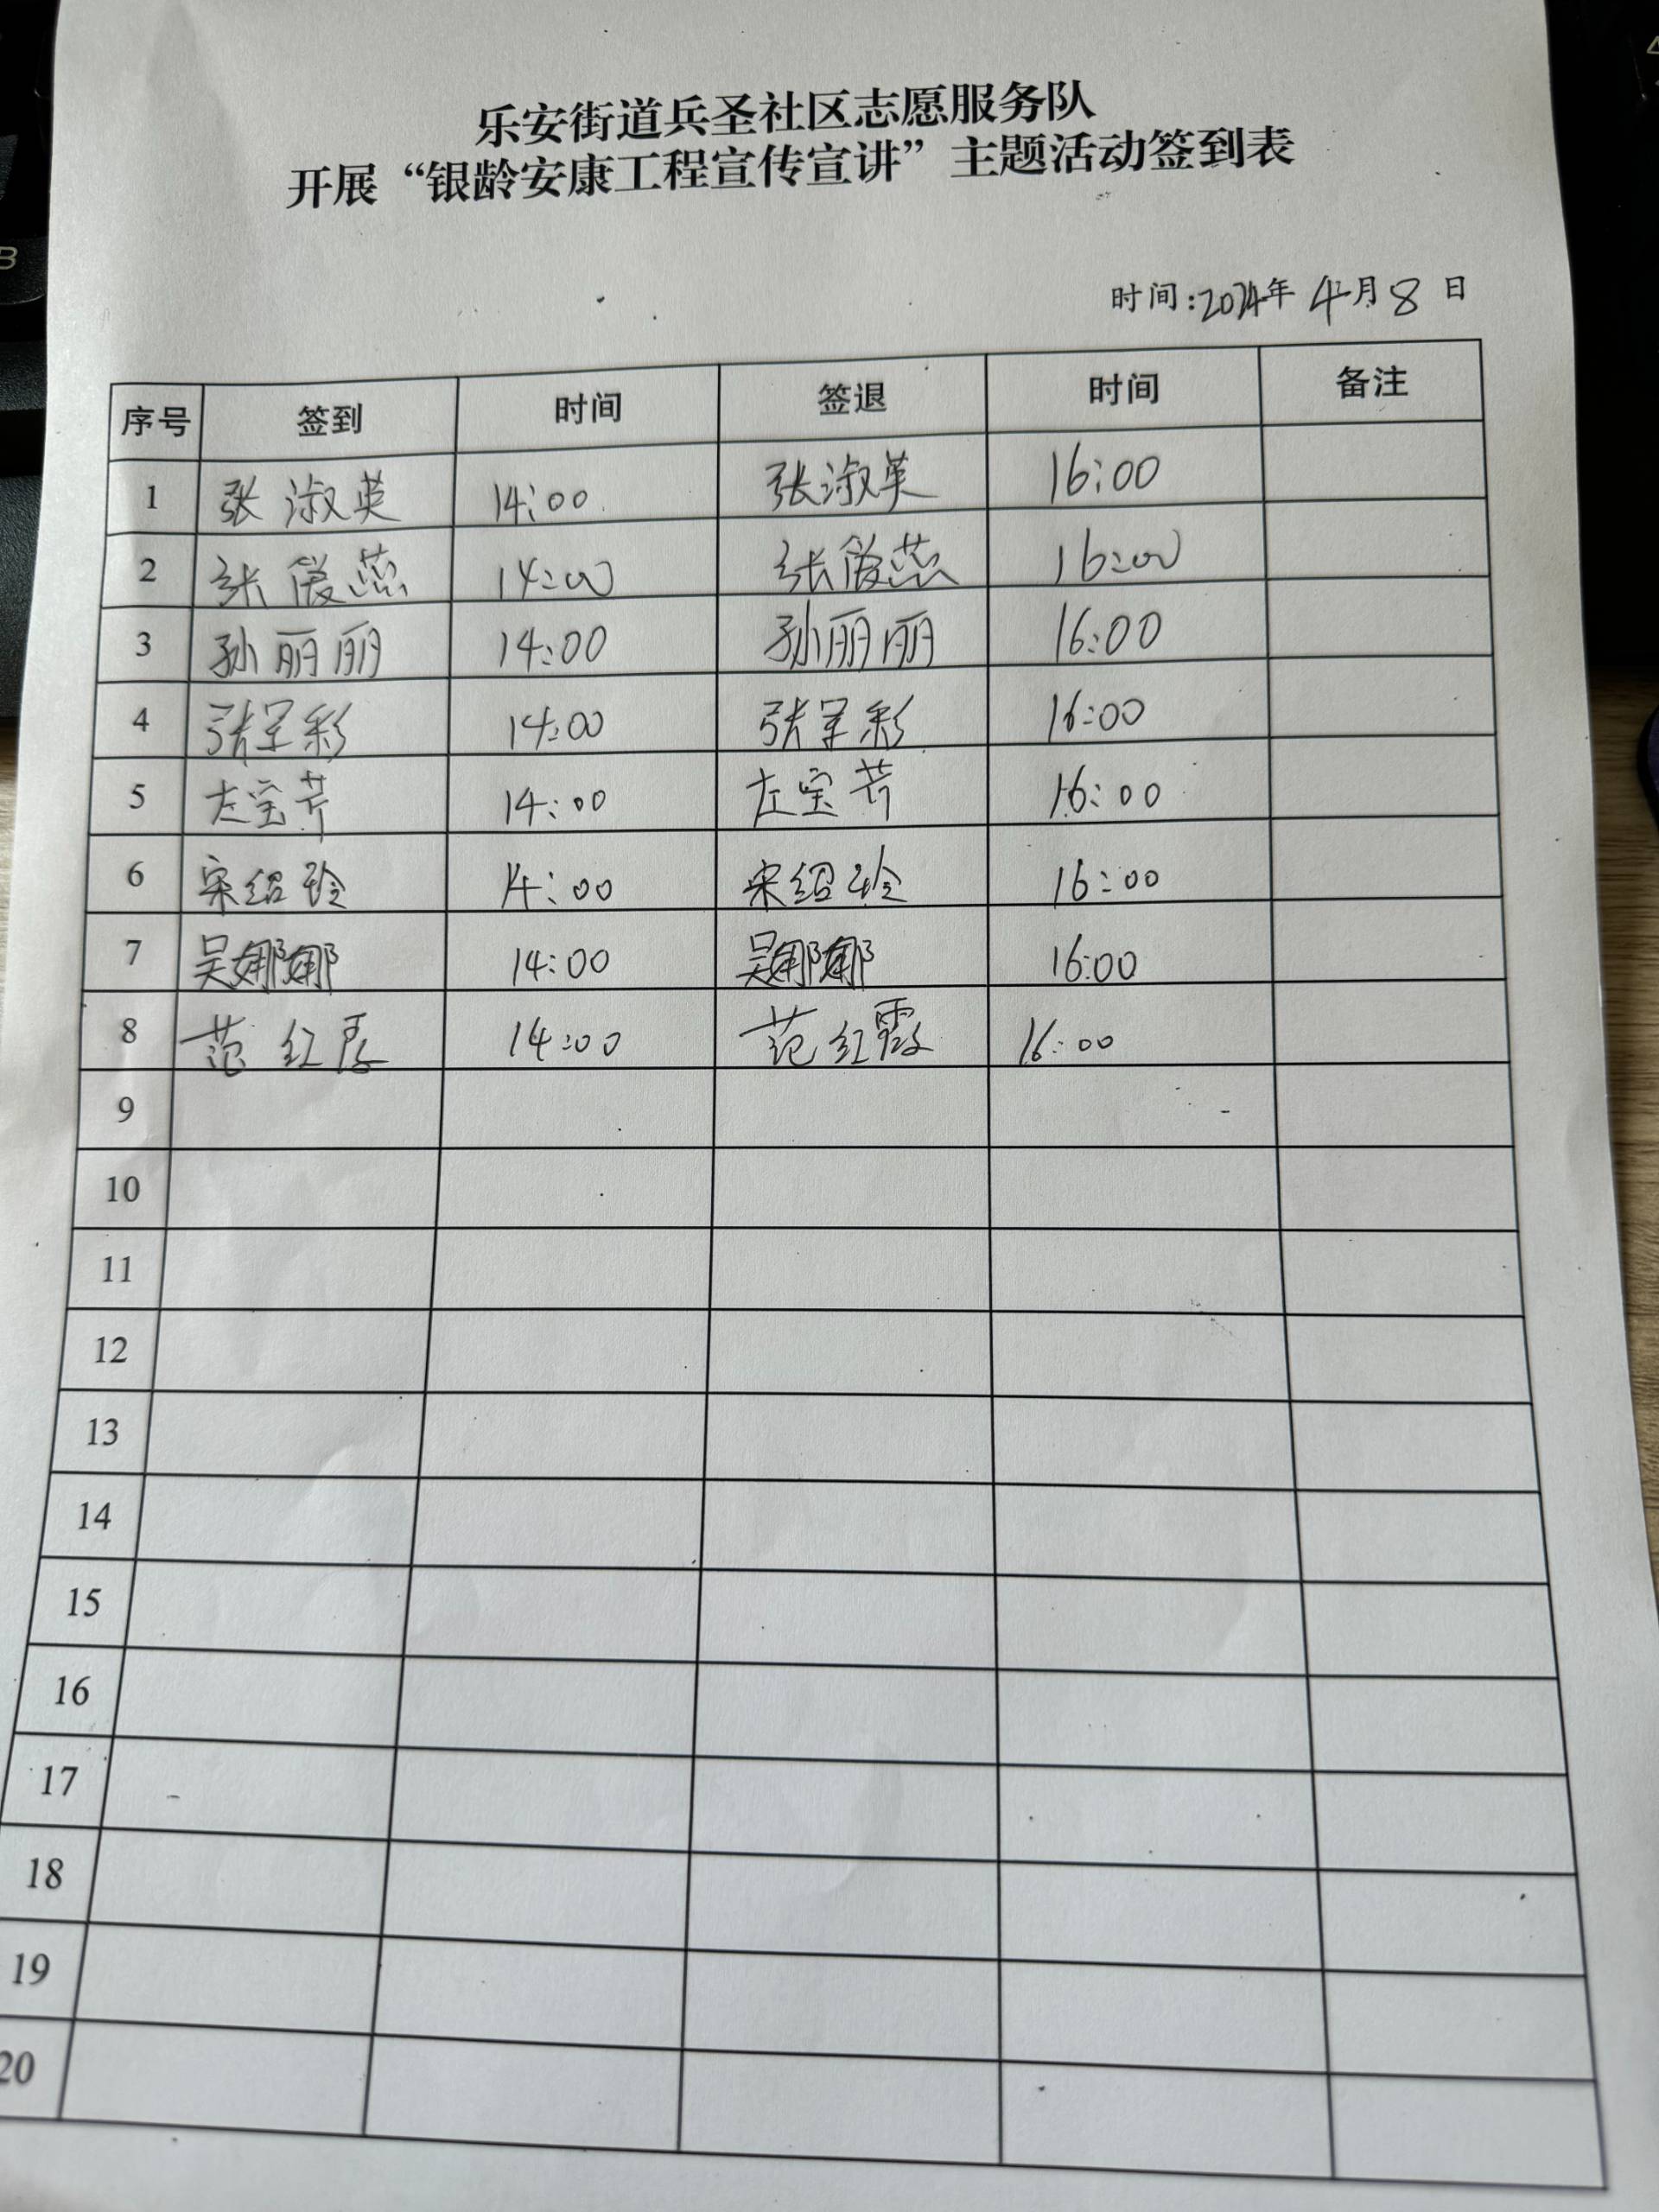 乐安街道兵圣社区志愿服务队
开展“银龄安康工程宣传宣讲”主题活动签到表
时间:2024年4月8日
序号 签到 时间 签退 时间 备注
1 张淑英 14:00 张淑英 16:00
2 张 蕊 14:00 张 蕊 16:00
3 孙丽丽 14:00 孙丽丽 16:00
4 张 彩 14:00 张 彩 16:00
5 左宝芹 14:00 左宝芹 16:00
6 宋绍玲 14:00 宋绍玲 16:00
7 吴娜娜 14:00 吴娜娜 16:00
8 范红霞 14:00 范红霞 16:00
9
10
11
12
13
14
15
16
17
18
19
20